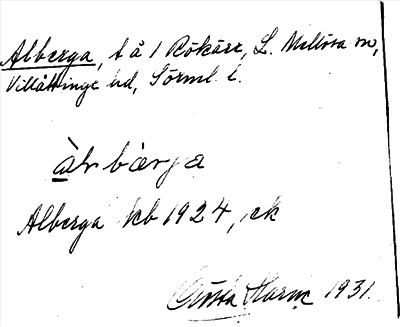 Alberga, t å 1 Rökärr, L. Mellösa sn,
Villåttinge hd, Sörml. l.
Alberga kb 1924, ek
Gösta 1931.